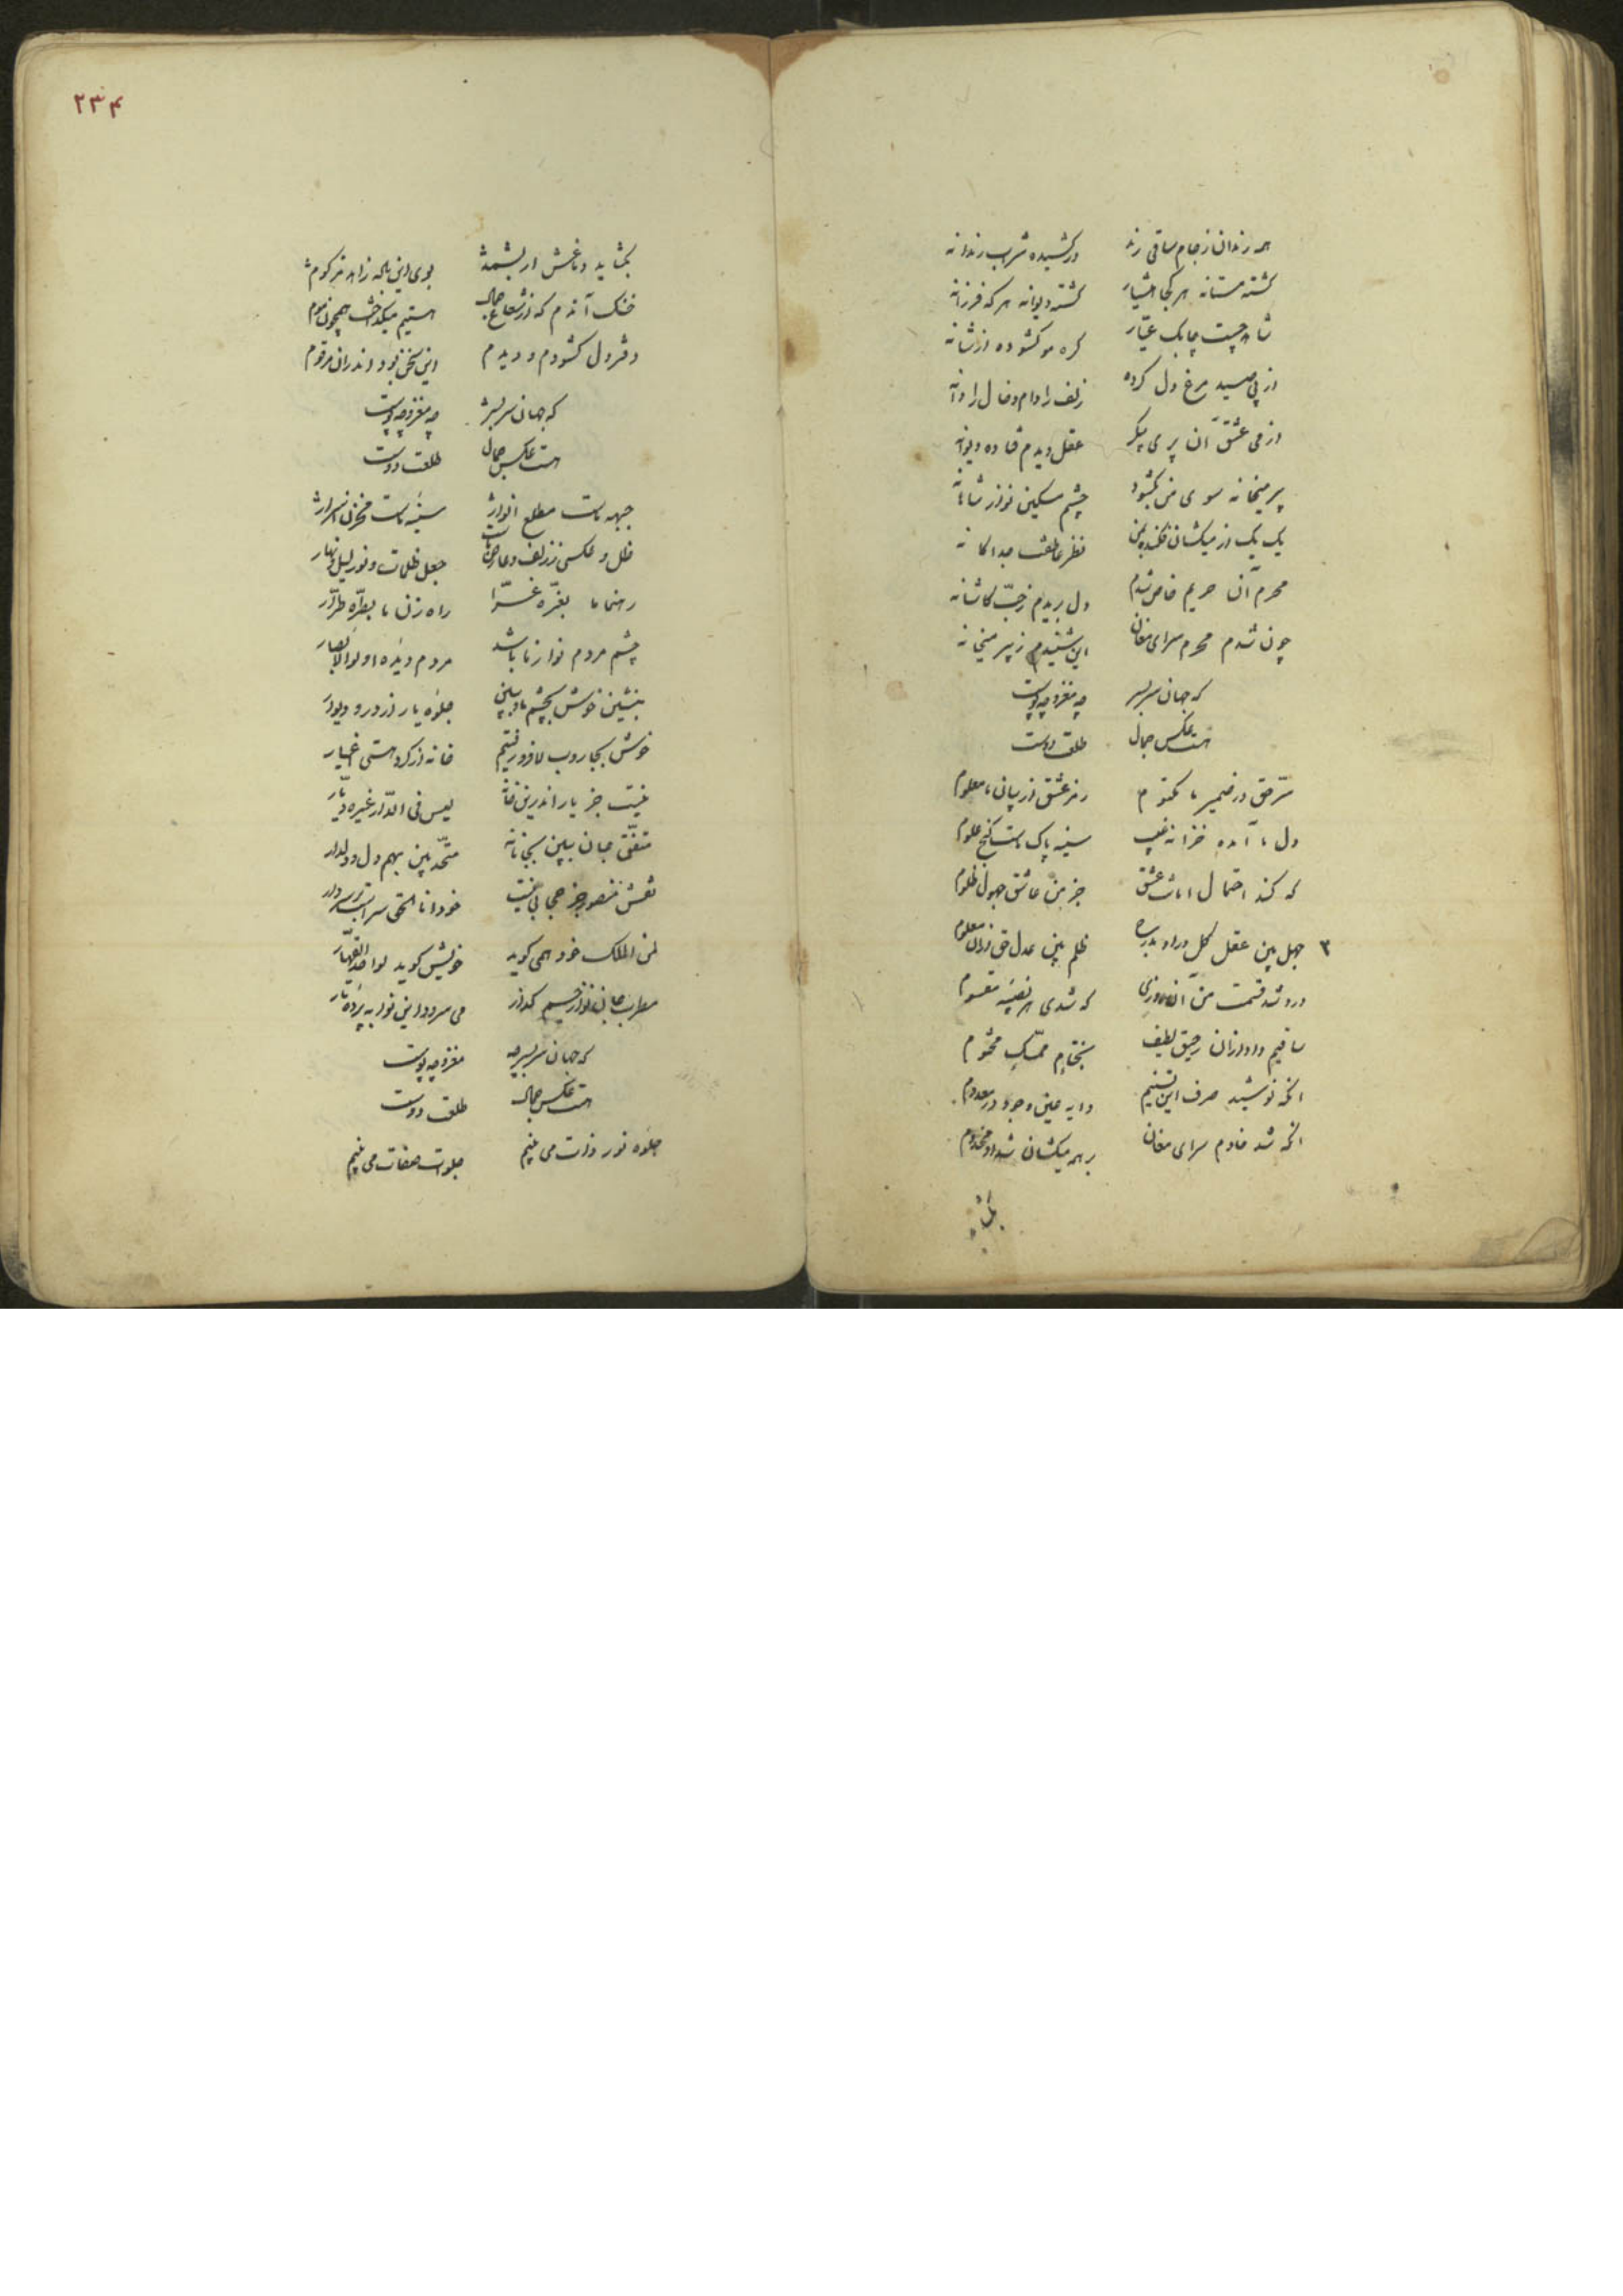 همه رندان ز جام ساقی رند درکشیده شراب رندانه
گشته مستانه هر کجا هشیار گشته دیوانه هر که فرزانه
شاهد چست چابک عیّار گره مو گشوده از شانه
از پی صید مرغ دل کرده زلف را دام و خال را دانه
از می عشق آن پری پیکر عقل دیدم فتاده دیوانه
پیر میخانه سوی من بگشود چشم مسکین نواز شاهانه
یک یک از میکشان فکنده بمن نظر عاطفت جداگانه
محرم آن حریم خاص شدم دل بریدم ز حبّ کاشانه
چون شدم محرم سرای مغان این شنیدم ز پیر میخانه
که جهان سربسر چه مغز و چه پوست
هست عکس جمال طلعت دوست
سرّ حق در ضمیر ما مکتوم رمز عشق از بیان ما معلوم
دل ما آمده خزانه غیب سینه پاک ماست گنج علوم
که کند احتمال امانت عشق جز من عاشق جهول ظلوم
۳ جهل بین عقل کل در او ظلم بین عدل حق از آن معلوم
درد شد قسمت من آن روزی که شدی هر نصیبه مقسوم
ساقیم داد از آن رحیق لطیف بختام ممسّک مختوم
آنکه نوشید صرف این تسنیم دایه عین وجود در معدوم
آنکه شد خادم سرای مغان بر همه میکشان شد او مخدوم
بگشاید
۲۳۴
بگشاید دماغش ار بشمد بوی این باده زاهد مزکوم
خنک آندم که از شعاع جمال هستیم میگداخت همچون موم
دفتر دل گشودم و دیدم این سخن بود اندران مرقوم
که جهان سربسر چه مغز و چه پوست
هست عکس جمال طلعت دوست
جبهه ماست مطلع انوار سینه ماست مخزن اسرار
ظل و عکسی ز زلف و عارض ماست جعل ظلمات و نور لیل و نهار
رهنما ما بغرّه غرّا راه زن ما بطرّه طرّار
چشم مردم نواز ما باشد مردم دیده اولوالابصار
بنشین خوش بچشم ما و ببین جلوه یار از در و دیوار
خوش بجاروب لا فرو رفتیم خانه از گرد هستی اغیار
نیست جز یار اندرین خانه لیس فی الدّار غیره دیّار
متفّق جان ببین بجانانه متّحد بین بهم دل و دلدار
نقش منصور جز حجابی نیست خود انا الحق سراست بر سر دار
لمن الملک خود همی گوید خویش گوید لواحد القهّار
مطرب جان نواز جسم گداز می سرود این نوا به پرده تار
که جهان سربسر چه مغز و چه پوست
هست عکس جمال طلعت دوست
جلوه نور ذات می بینم جلوات صفات می بینم